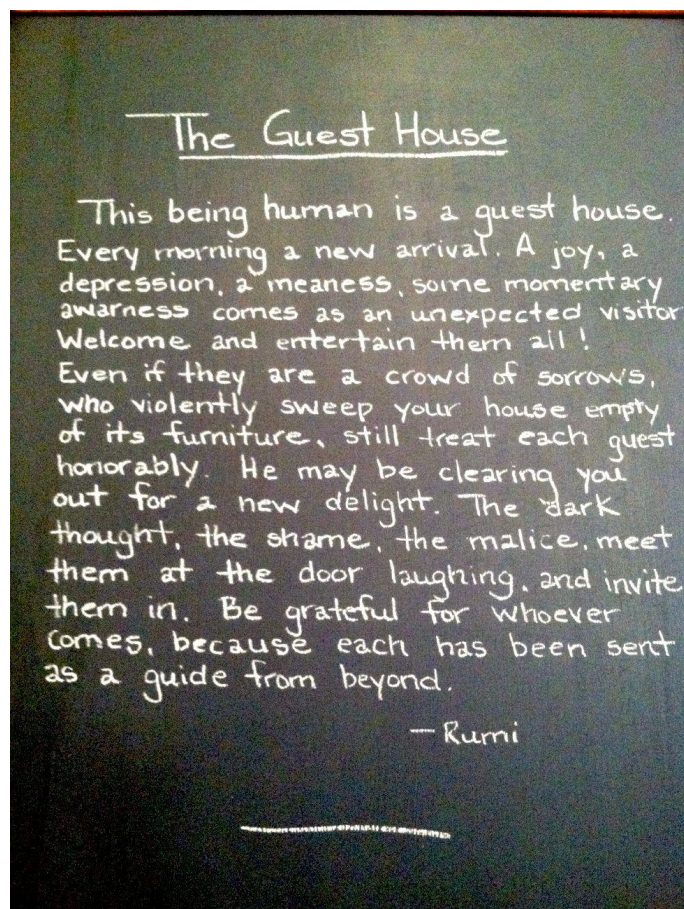 The Guest House
This being human is a guest house.
Every morning a new arrival. A joy, a
depression, a meaness, some momentary
awarness comes as an unexpected visitor
Welcome and entertain them all!
Even if they are a crowd of sorrows,
who violently sweep your house empty
of its furniture, still treat each guest
honorably. He may be clearing you
out for a new delight. The dark
thought, the shame, the malice, meet
them at the door laughing, and invite
them in. Be grateful for whoever
comes, because each has been sent
as a guide from beyond.
— Rumi